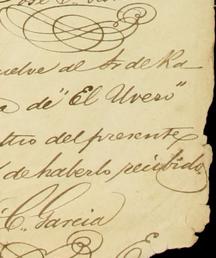 uelve al Sr de Ra
a de "El Uvero"
tro del presente
de haberlo recibido
C. Garcia
E